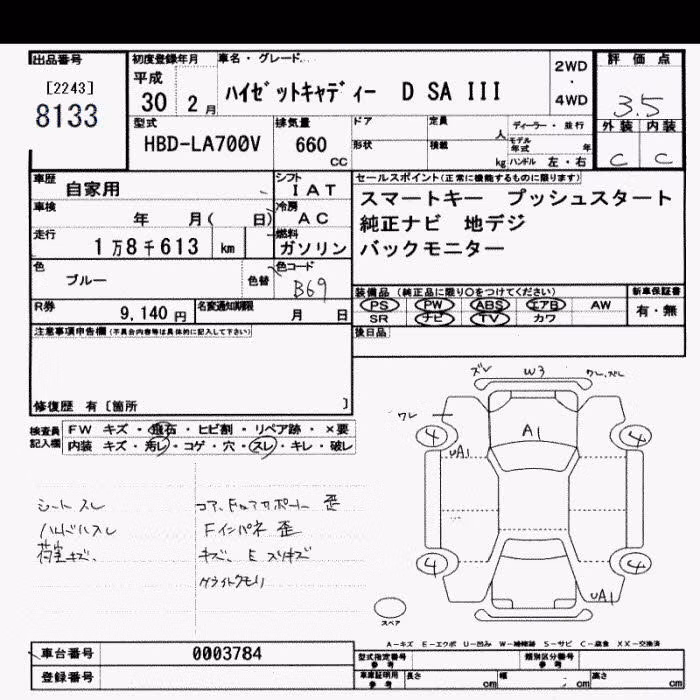 出品番号
[2243]
8133
初度登録年月
平成
30 2月
車名・グレード
ハイゼットキャディー D SA III
2WD
・
4WD
評価点
3.5
外装 内装
C C
型式
HBD-LA700V
排気量
660
CC
ドア
定員
人
ディーラー・並行
形状
積載
kg
モデル年式
年
ハンドル 左・右
車歴
自家用
シフト
IAT
車検
年 月( 日)
冷房
AC
走行
1万8千613 km
燃料
ガソリン
色
ブルー
色替
色コード
B69
R券
9,140 円
名変通知期限
月 日
セールスポイント(正常に機能するものに限ります)
スマートキー プッシュスタート
純正ナビ 地デジ
バックモニター
装備品(純正品に限り〇をつけてください)
PS PW ABS エアB AW
SR ナビ TV カワ
新車保証書
有・無
後日品
注意事項申告欄(不具合内容等は具体的に記入して下さい)
修復歴 有〔箇所 〕
検査員記入欄
FW キズ・飛石・ヒビ割・リペア跡・×要
内装 キズ・汚レ・コゲ・穴・スレ・キレ・破レ
シート スレ
ハンドルスレ
荷室キズ、
Fインパネ 歪
キズ、E スリキズ
ズレ
W3
ワレ
4
4
A1
UA1
4
4
UA1
スペア
A-キズ E-エクボ U-凹み W-補修跡 S-サビ C-腐食 XX-交換済
車台番号
0003784
登録番号
型式指定番号
参考
類別区分番号
参考
車庫証明用
参考
長さ
cm
幅
cm
高さ
cm